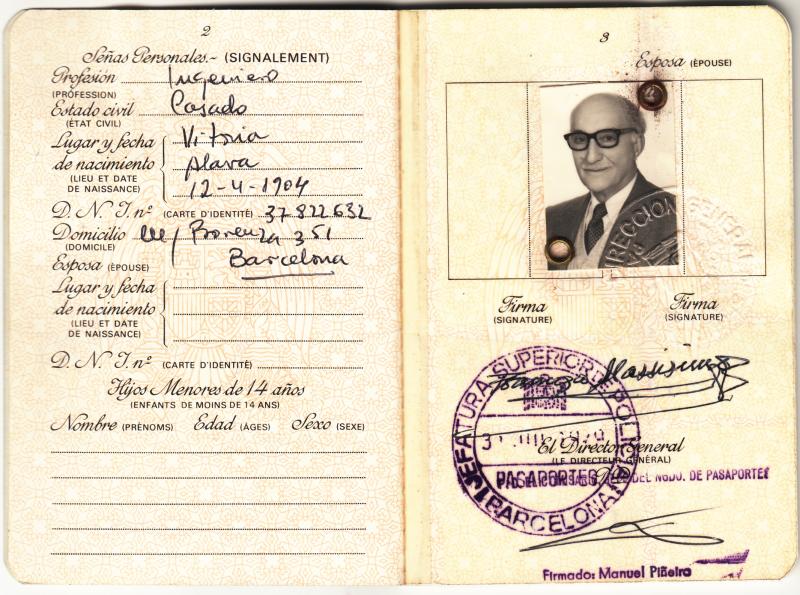 2
Señas Personales.- (SIGNALEMENT)
Profesión Ingeniero
(PROFESSION)
Estado civil Casado
(ÉTAT CIVIL)
Lugar y fecha Vitoria
de nacimiento Alava
(LIEU ET DATE
DE NAISSANCE) 12-4-1904
D. N. I. nº (CARTE D'IDENTITÉ) 37822632
Domicilio 351
(DOMICILE)
Esposa (ÉPOUSE) Barcelona
Lugar y fecha
de nacimiento
(LIEU ET DATE
DE NAISSANCE)
D. N. I. nº (CARTE D'IDENTITÉ)
Hijos Menores de 14 años
(ENFANTS DE MOINS DE 14 ANS)
Nombre (PRÉNOMS) Edad (ÂGES) Sexo (SEXE)
3
Esposa (ÉPOUSE)
DIRECCION GENERAL
Firma Firma
(SIGNATURE) (SIGNATURE)
JEFATURA SUPERIOR DE POLICIA
El Director General
(LE DIRECTEUR GÉNÉRAL)
PASAPORTES
DEL NGDO. DE PASAPORTES
BARCELONA
Firmado: Manuel Piñeiro